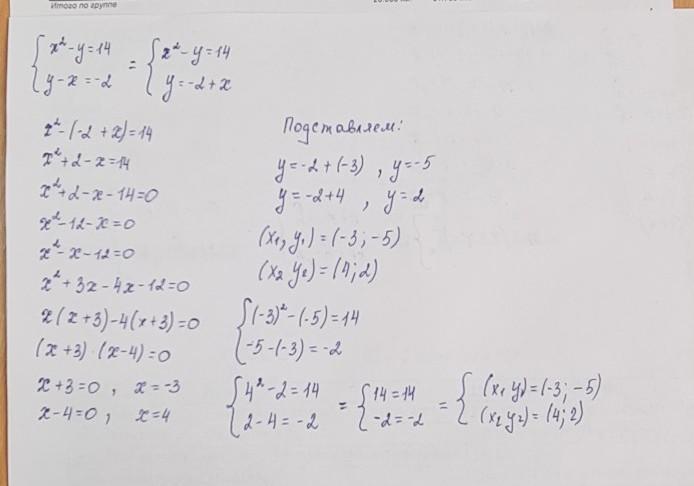 Итого по группе
{x²-y=14 = {x²-y=14
{y-x=-2 {y=-2+x
x²-(-2+x)=14
x²+2-x=14
x²+2-x-14=0
x²-12-x=0
x²-x-12=0
x²+3x-4x-12=0
x(x+3)-4(x+3)=0
(x+3)·(x-4)=0
x+3=0, x=-3
x-4=0, x=4
Подставляем:
y=-2+(-3), y=-5
y=-2+4, y=2
(x₁, y₁)=(-3;-5)
(x₂ y₂)=(4;2)
{(-3)²-(-5)=14
{-5-(-3)=-2
{4²-2=14 = {14=14 = {(x₁ y₁)=(-3;-5)
{2-4=-2 {-2=-2 {(x₂ y₂)=(4;2)